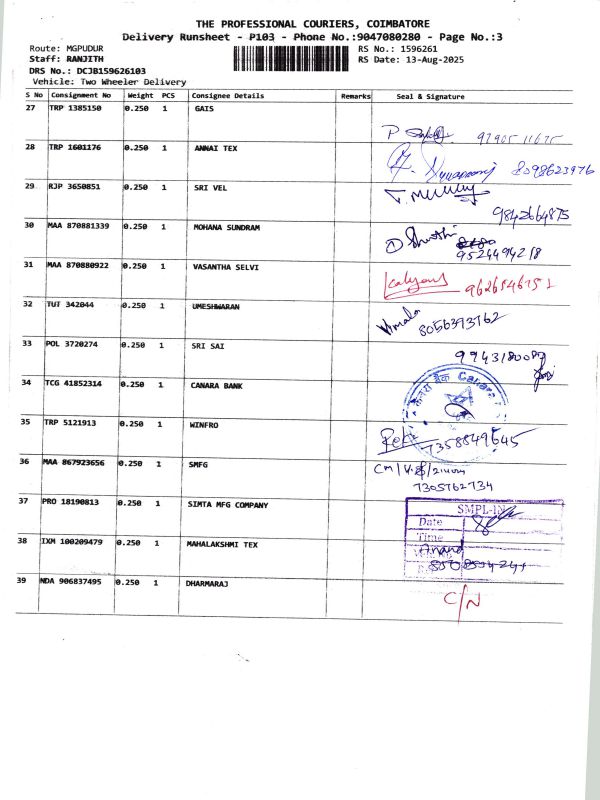 THE PROFESSIONAL COURIERS, COIMBATORE
Delivery Runsheet - P103 - Phone No.:9047080280 - Page No.:3
Route: MGPUDUR
RS No.: 1596261
Staff: RANJITH
RS Date: 13-Aug-2025
DRS No.: DCJB159626103
Vehicle: Two Wheeler Delivery
S No Consignment No Weight PCS Consignee Details Remarks Seal & Signature
27 TRP 1385150 0.250 1 GAIS
28 TRP 1601176 0.250 1 ANNAI TEX
8098623976
29 RJP 3650851 0.250 1 SRI VEL
9842664875
30 MAA 870881339 0.250 1 MOHANA SUNDRAM
9524494218
31 MAA 870880922 0.250 1 VASANTHA SELVI
32 TUT 342044 0.250 1 UMESHWARAN
Vimala 8056393762
33 POL 3720274 0.250 1 SRI SAI
34 TCG 41852314 0.250 1 CANARA BANK
Canara
35 TRP 5121913 0.250 1 WINFRO
7358849645
36 MAA 867923656 0.250 1 SMFG
7305762734
37 PRO 18190813 0.250 1 SIMTA MFG COMPANY
SMPL-IN
Date
Time
38 IXM 100209479 0.250 1 MAHALAKSHMI TEX
Anand
39 NDA 906837495 0.250 1 DHARMARAJ
C/N